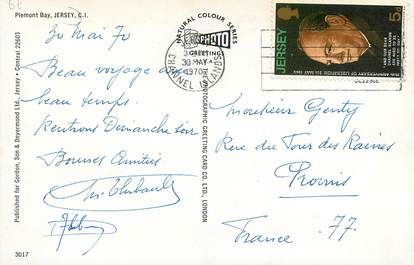 Plemont Bay, JERSEY, C.I.
30 Mai 70
Beau voyage avec
beau temps.
Rentrons Dimanche soir
Bonnes Amitiés
Published for Gordon, Son & Deyermond Ltd., Jersey • Central 22601
3017
NATURAL COLOUR SERIES
PHOTO
GREETINGS
PHOTOGRAPHIC GREETING CARD CO. LTD., LONDON
30 MAY
1970
CHANNEL ISLANDS
JERSEY
5d
ANNIVERSARY OF LIBERATION 9th MAY 1945
Monsieur Genty
Rue du Tour des Raines
Provins
77.
France